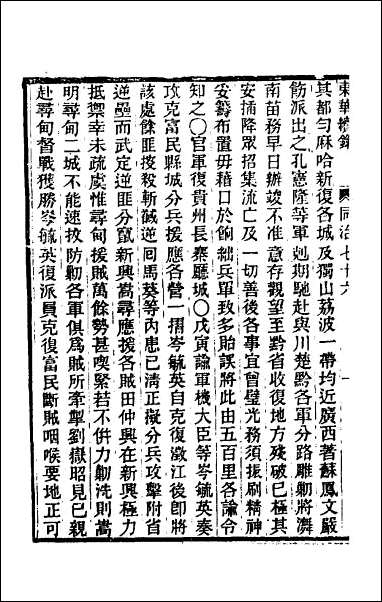 東華續錄 同治七十六
其都勻麻哈新復各城及獨山荔波一帶均近廣西著蘇鳳文嚴
飭派出之孔憲隆等軍剋期馳赴與川楚黔各軍分路雕勦將濟
南苗務早日辦竣不准意存觀望至黔省收復地方殘破已極其
安插降眾招集流亡及一切善後各事宜曾璧光務須振刷精神
妥籌布置毋藉口於餉絀兵單致多貽誤將此由五百里各諭令
知之〇官軍復貴州長寨廳城〇戊寅諭軍機大臣等岑毓英奏
攻克富民縣城分兵援應各營一摺岑毓英自克復澂江後卽將
該處餘匪搜殺斬馘逆回馬葵等內患已清正擬分兵攻擊附省
逆壘而武定逆匪分竄新興嵩尋應援各賊田仲興在新興極力
抵禦幸未疏虞惟尋甸援賊萬餘勢甚喫緊若不併力勦洗則嵩
明尋甸二城不能速拔防勦各軍俱爲賊所牽掣劉嶽昭見已親
赴尋甸督戰獲勝岑毓英復派員克復富民斷賊咽喉要地正可